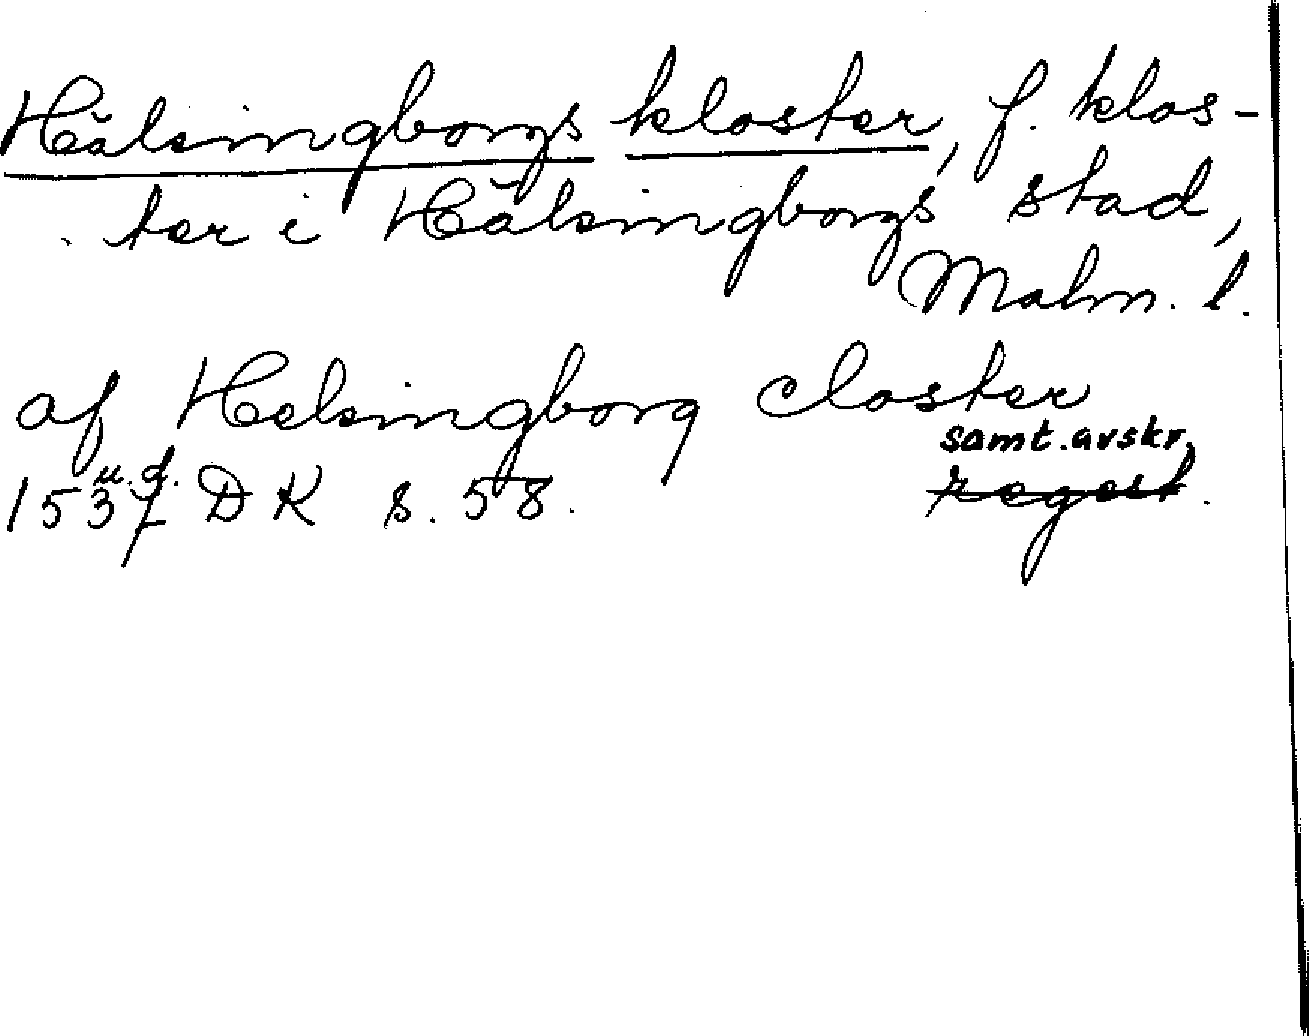 Hälsingborgs kloster, f. klos-
ter i Hälsingborgs stad,
Malm. l.
af Helsingborg closter
samt. avskr.
1537 u.d. DK s. 58. regest.